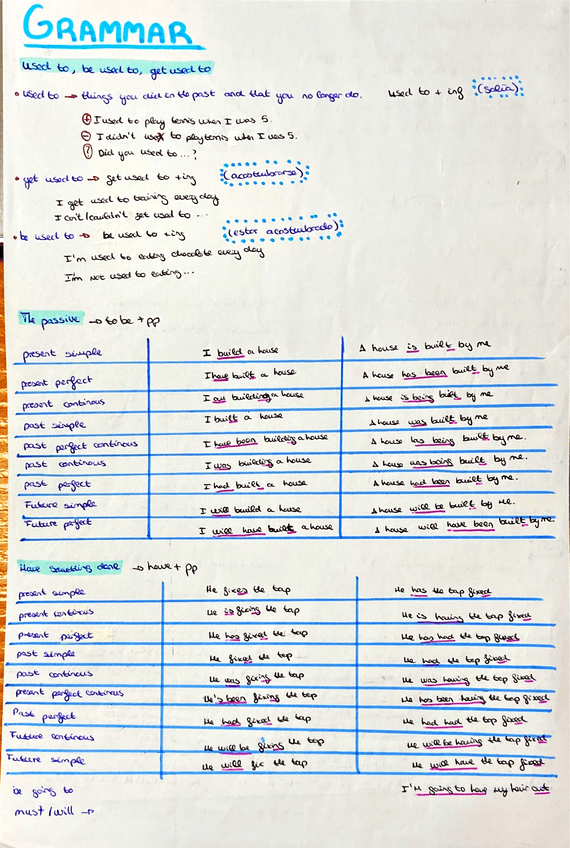 GRAMMAR
used to, be used to, get used to
• used to → things you did in the past and that you no longer do. used to + ing (solía)
+ I used to play tennis when I was 5.
- I didn't use to play tennis when I was 5.
? Did you used to...?
• get used to → get used to + ing (acostumbrarse)
I get used to training every day
I can't/couldn't get used to ...
• be used to → be used to + ing (estar acostumbrado)
I'm used to eating chocolate every day
I'm not used to eating...
The passive → to be + pp
present simple I build a house A house is built by me.
present perfect I have built a house A house has been built by me
present continous I am building a house A house is being built by me
past simple I built a house A house was built by me
past perfect continous I have been building a house A house has being built by me.
past continous I was building a house A house was being built by me.
past perfect I had built a house A house had been built by me.
Future simple I will build a house A house will be built by me.
Future perfect I will have built a house A house will have been built by me.
Have something done → have + pp
present simple He fixes the tap He has the tap fixed
present continous He is fixing the tap He is having the tap fixed
present perfect He has fixed the tap He has had the tap fixed
past simple He fixed the tap He had the tap fixed
past continous He was fixing the tap He was having the tap fixed
present perfect continous He's been fixing the tap He has been having the tap fixed
Past perfect He had fixed the tap He had had the tap fixed
Future continous He will be fixing the tap He will be having the tap fixed
Future simple He will fix the tap He will have the tap fixed
be going to I'm going to have my hair cut.
must/will →